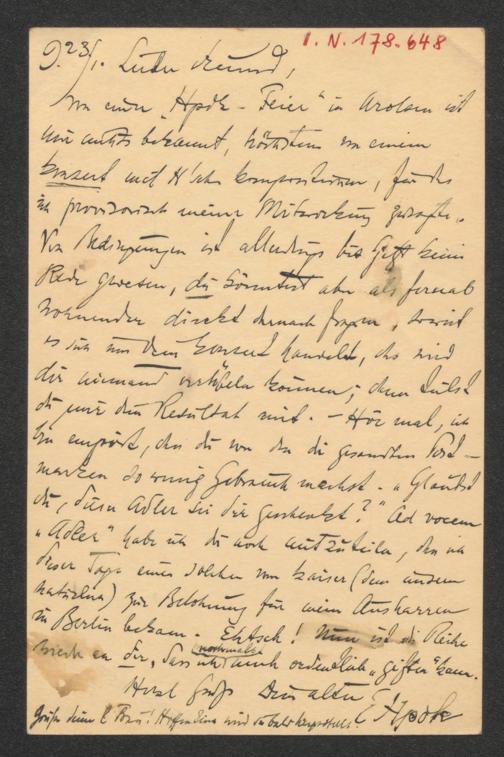 I. N. 178.648
9. 23/1. Lieber Freund,
Von einer "Hpdk-Feier" in Arolsen ist
mir nichts bekannt, höchstens von einem
Konzert mit H'schen Kompositionen, für das
ich provisorisch meine Mitwirkung zusagte.
Von Bedingungen ist allerdings bis jetzt keine
Rede gewesen, du könntest aber als fernab
Wohnender direkt darnach fragen, soweit
es sich um dem Konzert handelt, das wird
dir niemand verübeln können; dann teilst
du mir das Resultat mit. - Hör mal, ich
bin empört, dass du von den dir gesandten Post-
marken so wenig Gebrauch machst. "Glaubst
du, dieser Adler sei dir geschenkt?" Ad vocem
"Adler" habe ich dir noch mitzuteilen, den ich
dieser Tage einen solchen vom Kaiser (dem unsern
natürlich) zur Belohnung für mein Ausharren
in Berlin bekam. Ehtsch! Nun ist die Reihe
wieder an dir, dass ich (nochmals) auch ordentlich "giften" kann.
Herzl Gruß Dein alter E Hpdk
Grüße deine l Frau! Hoffentlich wird sie bald